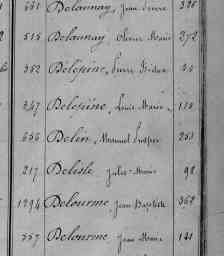 551 Delaunay, Jean Pierre 326
515 Delaunay, Olivier Marie 272
352 Delépine, Pierre
347 Delépine, Louis Marie 118
656 Delin, Manuel Prosper 253
217 Delisle, Jules Marie 98
1294 Delourme, Jean Baptiste 369
557 Delourme, Jean Marie 141